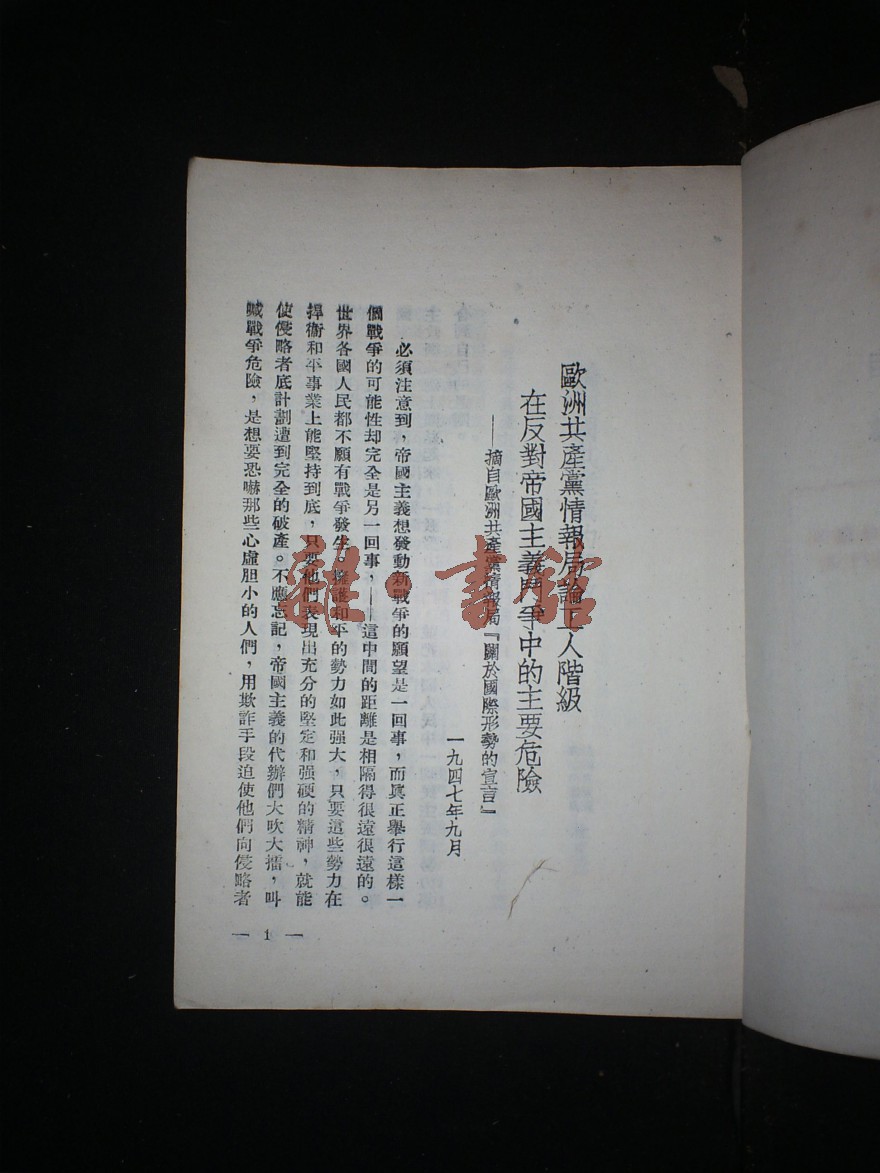 歐洲共產黨情報局論工人階級
在反對帝國主義鬥爭中的主要危險
——摘自歐洲共產黨情報局『關於國際形勢的宣言』
一九四七年九月
必須注意到，帝國主義想發動新戰爭的願望是一回事，而眞正舉行這樣一
個戰爭的可能性却完全是另一回事，——這中間的距離是相隔得很遠很遠的。
世界各國人民都不願有戰爭發生。擁護和平的勢力如此强大，只要這些勢力在
捍衞和平事業上能堅持到底，只要他們表現出充分的堅定和强硬的精神，就能
使侵略者底計劃遭到完全的破產。不應忘記，帝國主義的代辦們大吹大擂，叫
喊戰爭危險，是想要恐嚇那些心虛胆小的人們，用欺詐手段迫使他們向侵略者
— 1 —
雜·書館